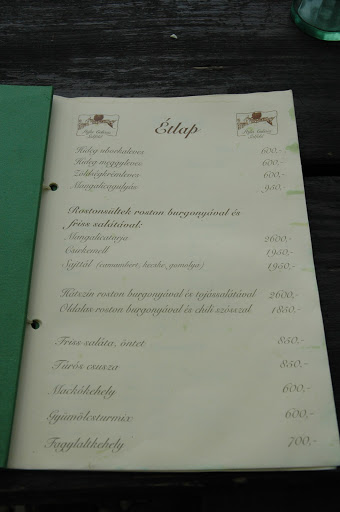 Étlap
Hideg uborkaleves 600,-
Hideg meggyleves 600,-
Zöldségkrémleves 600,-
Mangalicagulyás 950,-
Rostonsültek roston burgonyával és
friss salátával:
Mangalicatarja 2600,-
Csirkemell 1950,-
Sajttál (camambert, kecske, gomolya) 1950,-
Hátszín roston burgonyával és tojássalátával 2600,-
Oldalas roston burgonyával és chili szósszal 1850,-
Friss saláta, öntet 850,-
Túrós csusza 850,-
Mackókehely 600,-
Gyümölcsturmix 600,-
Fagylaltkehely 700,-